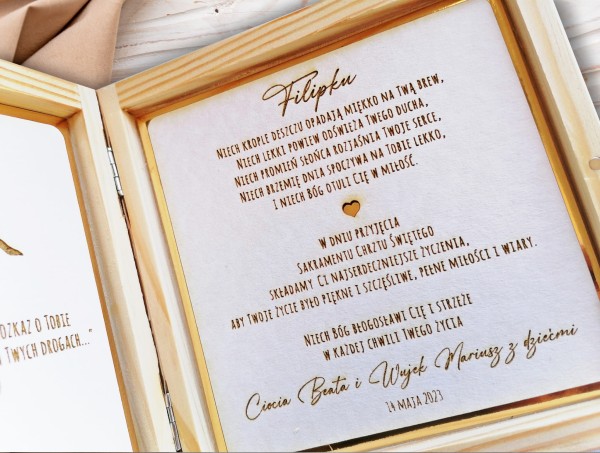 OZKAZ O TOBIE
TWYCH DROGACH..."
Filipku
NIECH KROPLE DESZCZU OPADAJĄ MIĘKKO NA TWĄ BREW,
NIECH LEKKI POWIEW ODŚWIEŻA TWEGO DUCHA,
NIECH PROMIEŃ SŁOŃCA ROZJAŚNIA TWOJE SERCE,
NIECH BRZEMIĘ DNIA SPOCZYWA NA TOBIE LEKKO,
I NIECH BÓG OTULI CIĘ W MIŁOŚĆ.
W DNIU PRZYJĘCIA
SAKRAMENTU CHRZTU ŚWIĘTEGO
SKŁADAMY CI NAJSERDECZNIEJSZE ŻYCZENIA,
ABY TWOJE ŻYCIE BYŁO PIĘKNE I SZCZĘŚLIWE, PEŁNE MIŁOŚCI I WIARY.
NIECH BÓG BŁOGOSŁAWI CIĘ I STRZEŻE
W KAŻDEJ CHWILI TWEGO ŻYCIA
Ciocia Beata i Wujek Mariusz z dziećmi
14 MAJA 2023